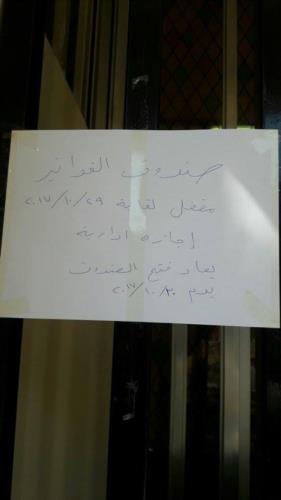 صندوق الفواتير
مقفل لغاية ٢٠١٧/١٠/٢٩
إجازة ادارية
يعاد فتح الصندوق
يوم ٢٠١٧/١٠/٣٠